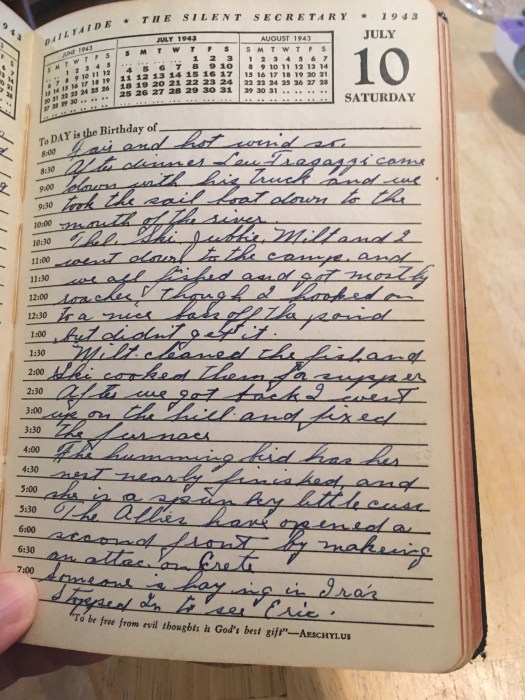 DAILYAIDE ★ THE SILENT SECRETARY ★ 1943
JUNE 1943
JULY 1943
S M T W T F S
1 2 3
4 5 6 7 8 9 10
11 12 13 14 15 16 17
18 19 20 21 22 23 24
25 26 27 28 29 30 31
AUGUST 1943
S M T W T F S
1 2 3 4 5 6 7
8 9 10 11 12 13 14
15 16 17 18 19 20 21
22 23 24 25 26 27 28
29 30 31
JULY
10
SATURDAY
To DAY is the Birthday of
8:00 Fair and hot wind so.
8:30 After dinner Leu Fragazzi came
9:00 down with his truck and we
9:30 took the sail boat down to the
10:00 mouth of the river.
10:30 Thel, Ski, Jubbie, Milt and I
11:00 went down to the camp, and
11:30 we all fished and got mostly
12:00 roaches, though I hooked on
12:30 to a nice bass off the point
1:00 but didn't get it.
1:30 Milt cleaned the fish and
2:00 Ski cooked them for supper
2:30 After we got back I went
3:00 up on the hill and fixed
3:30 the furnace
4:00 The humming bird has her
4:30 nest nearly finished, and
5:00 she is a spunkey little cuss
5:30 The Allies have opened a
6:00 second front by makeing
6:30 an attac on Crete
7:00 Someone is haying in Ira's
Stopped In to see Eric.
"To be free from evil thoughts is God's best gift"—AESCHYLUS